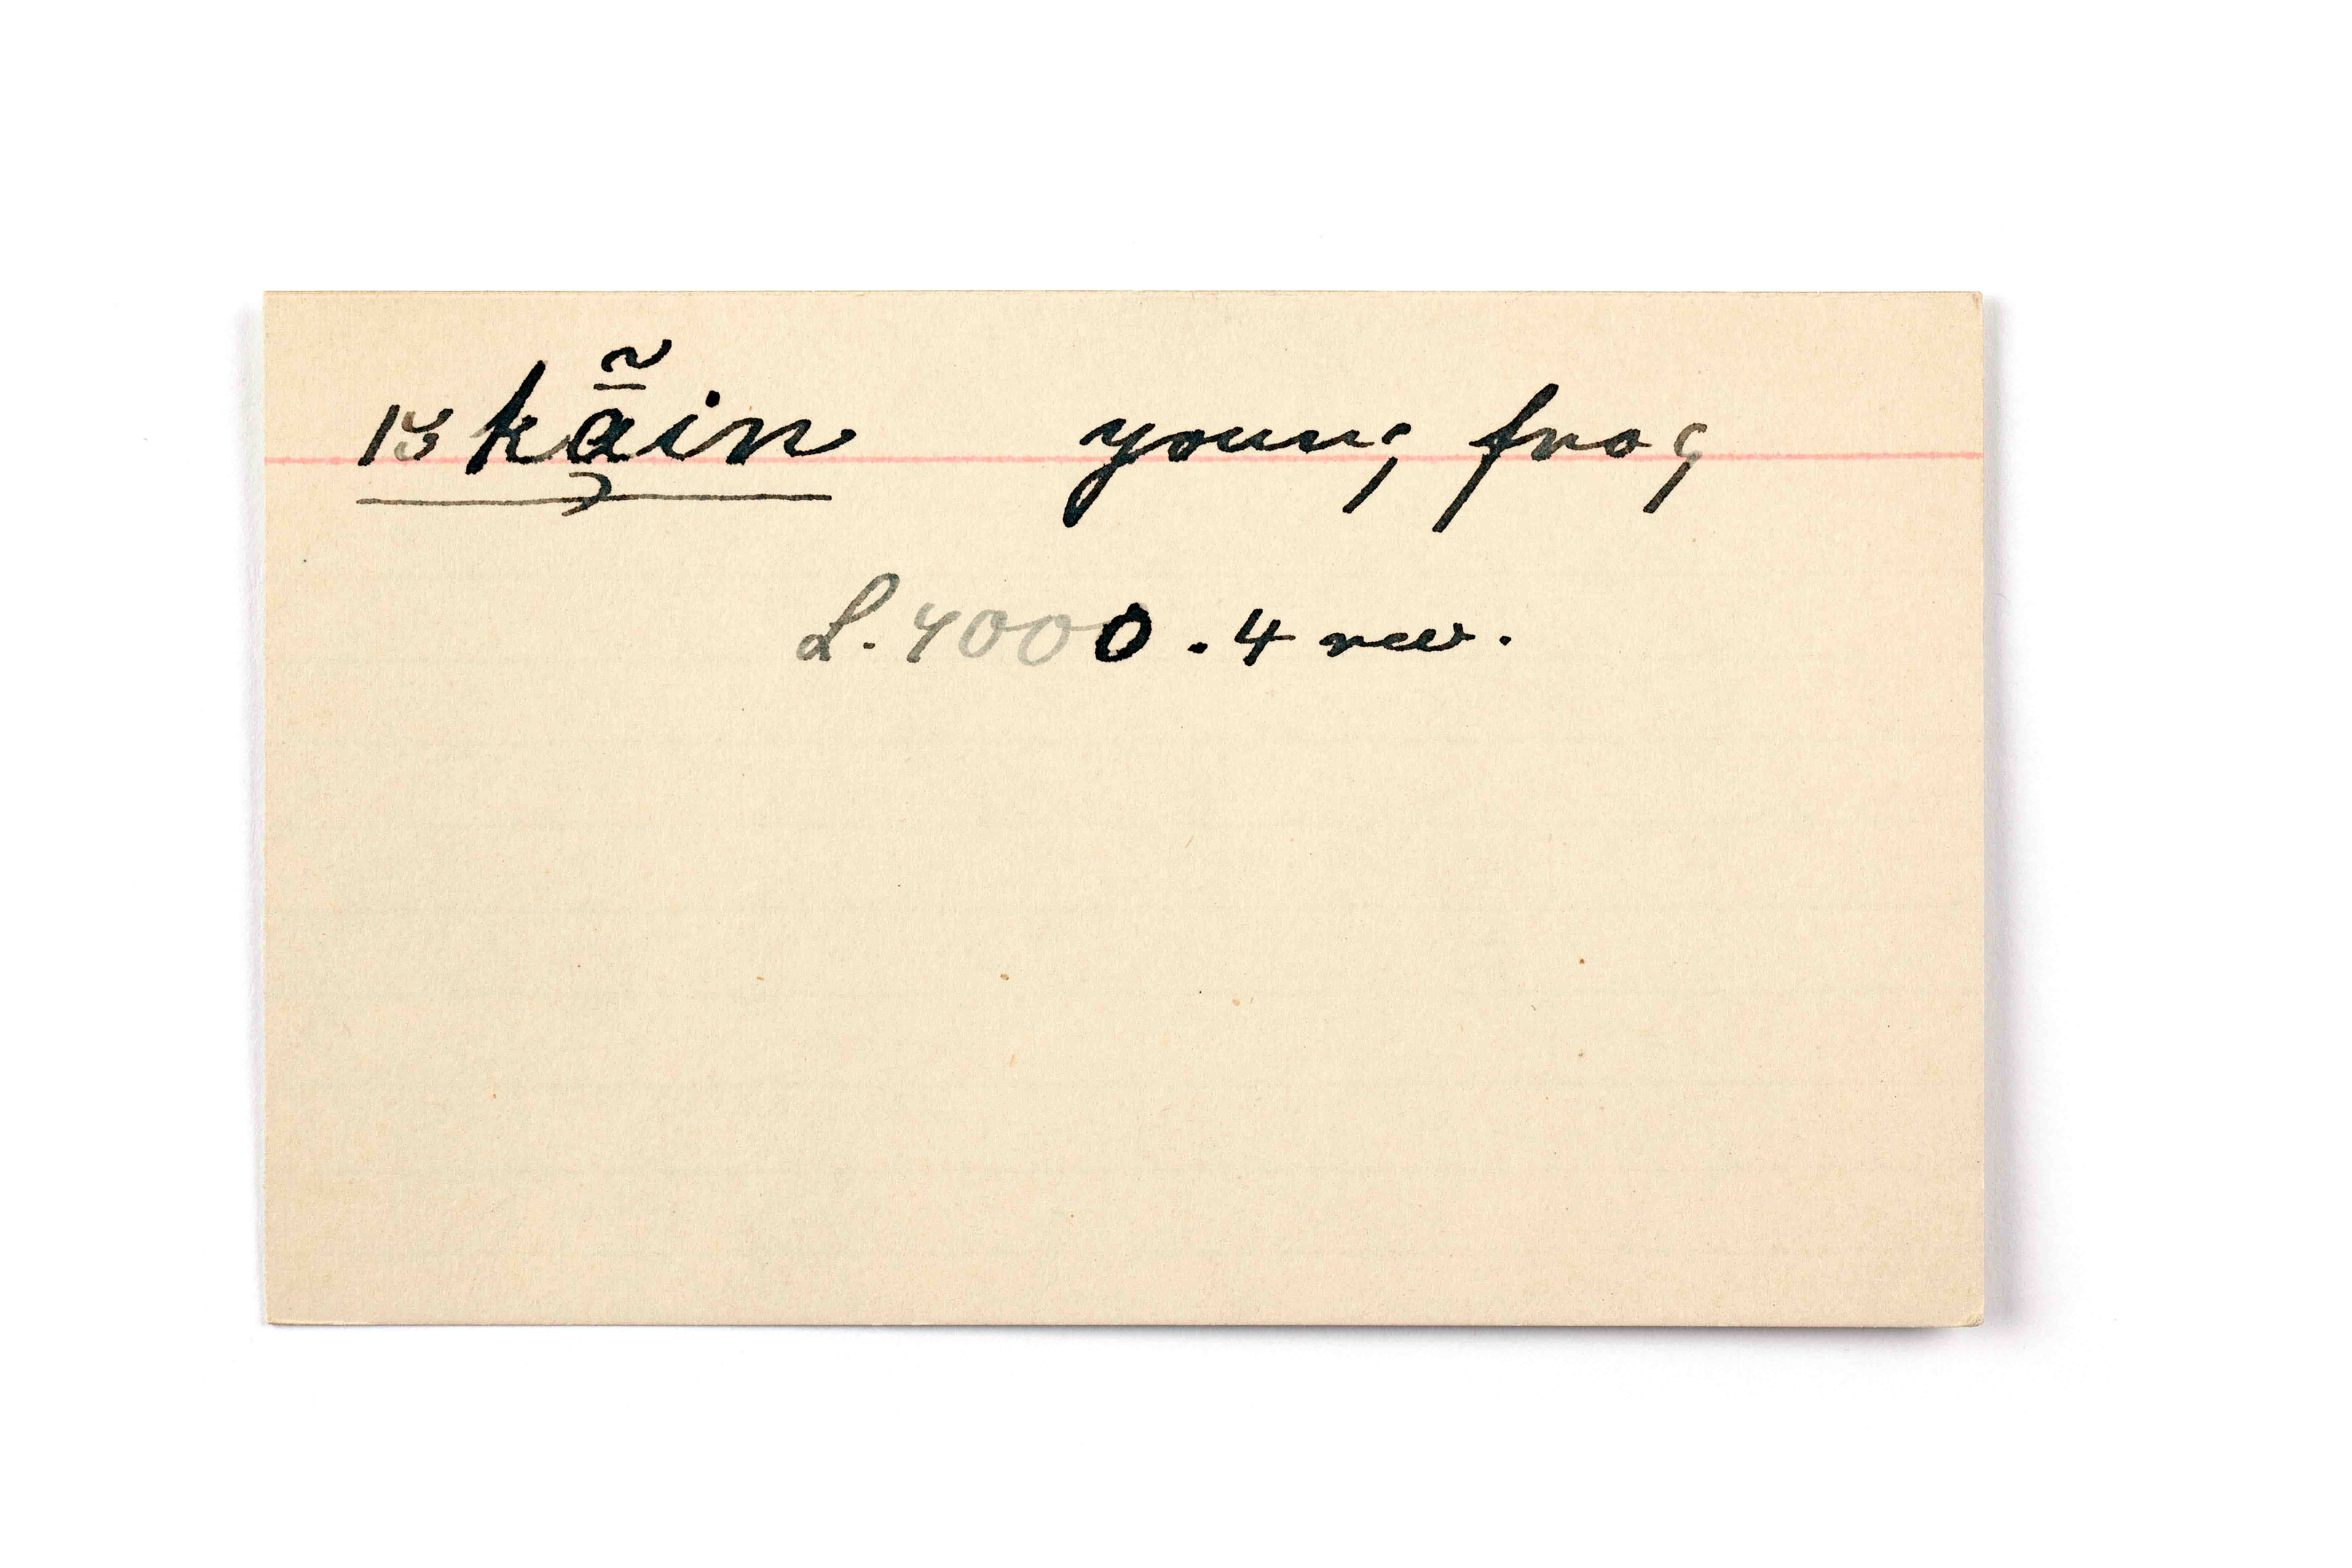 |ɜką̄̃in young frog
L. 4000 . 4 rev.